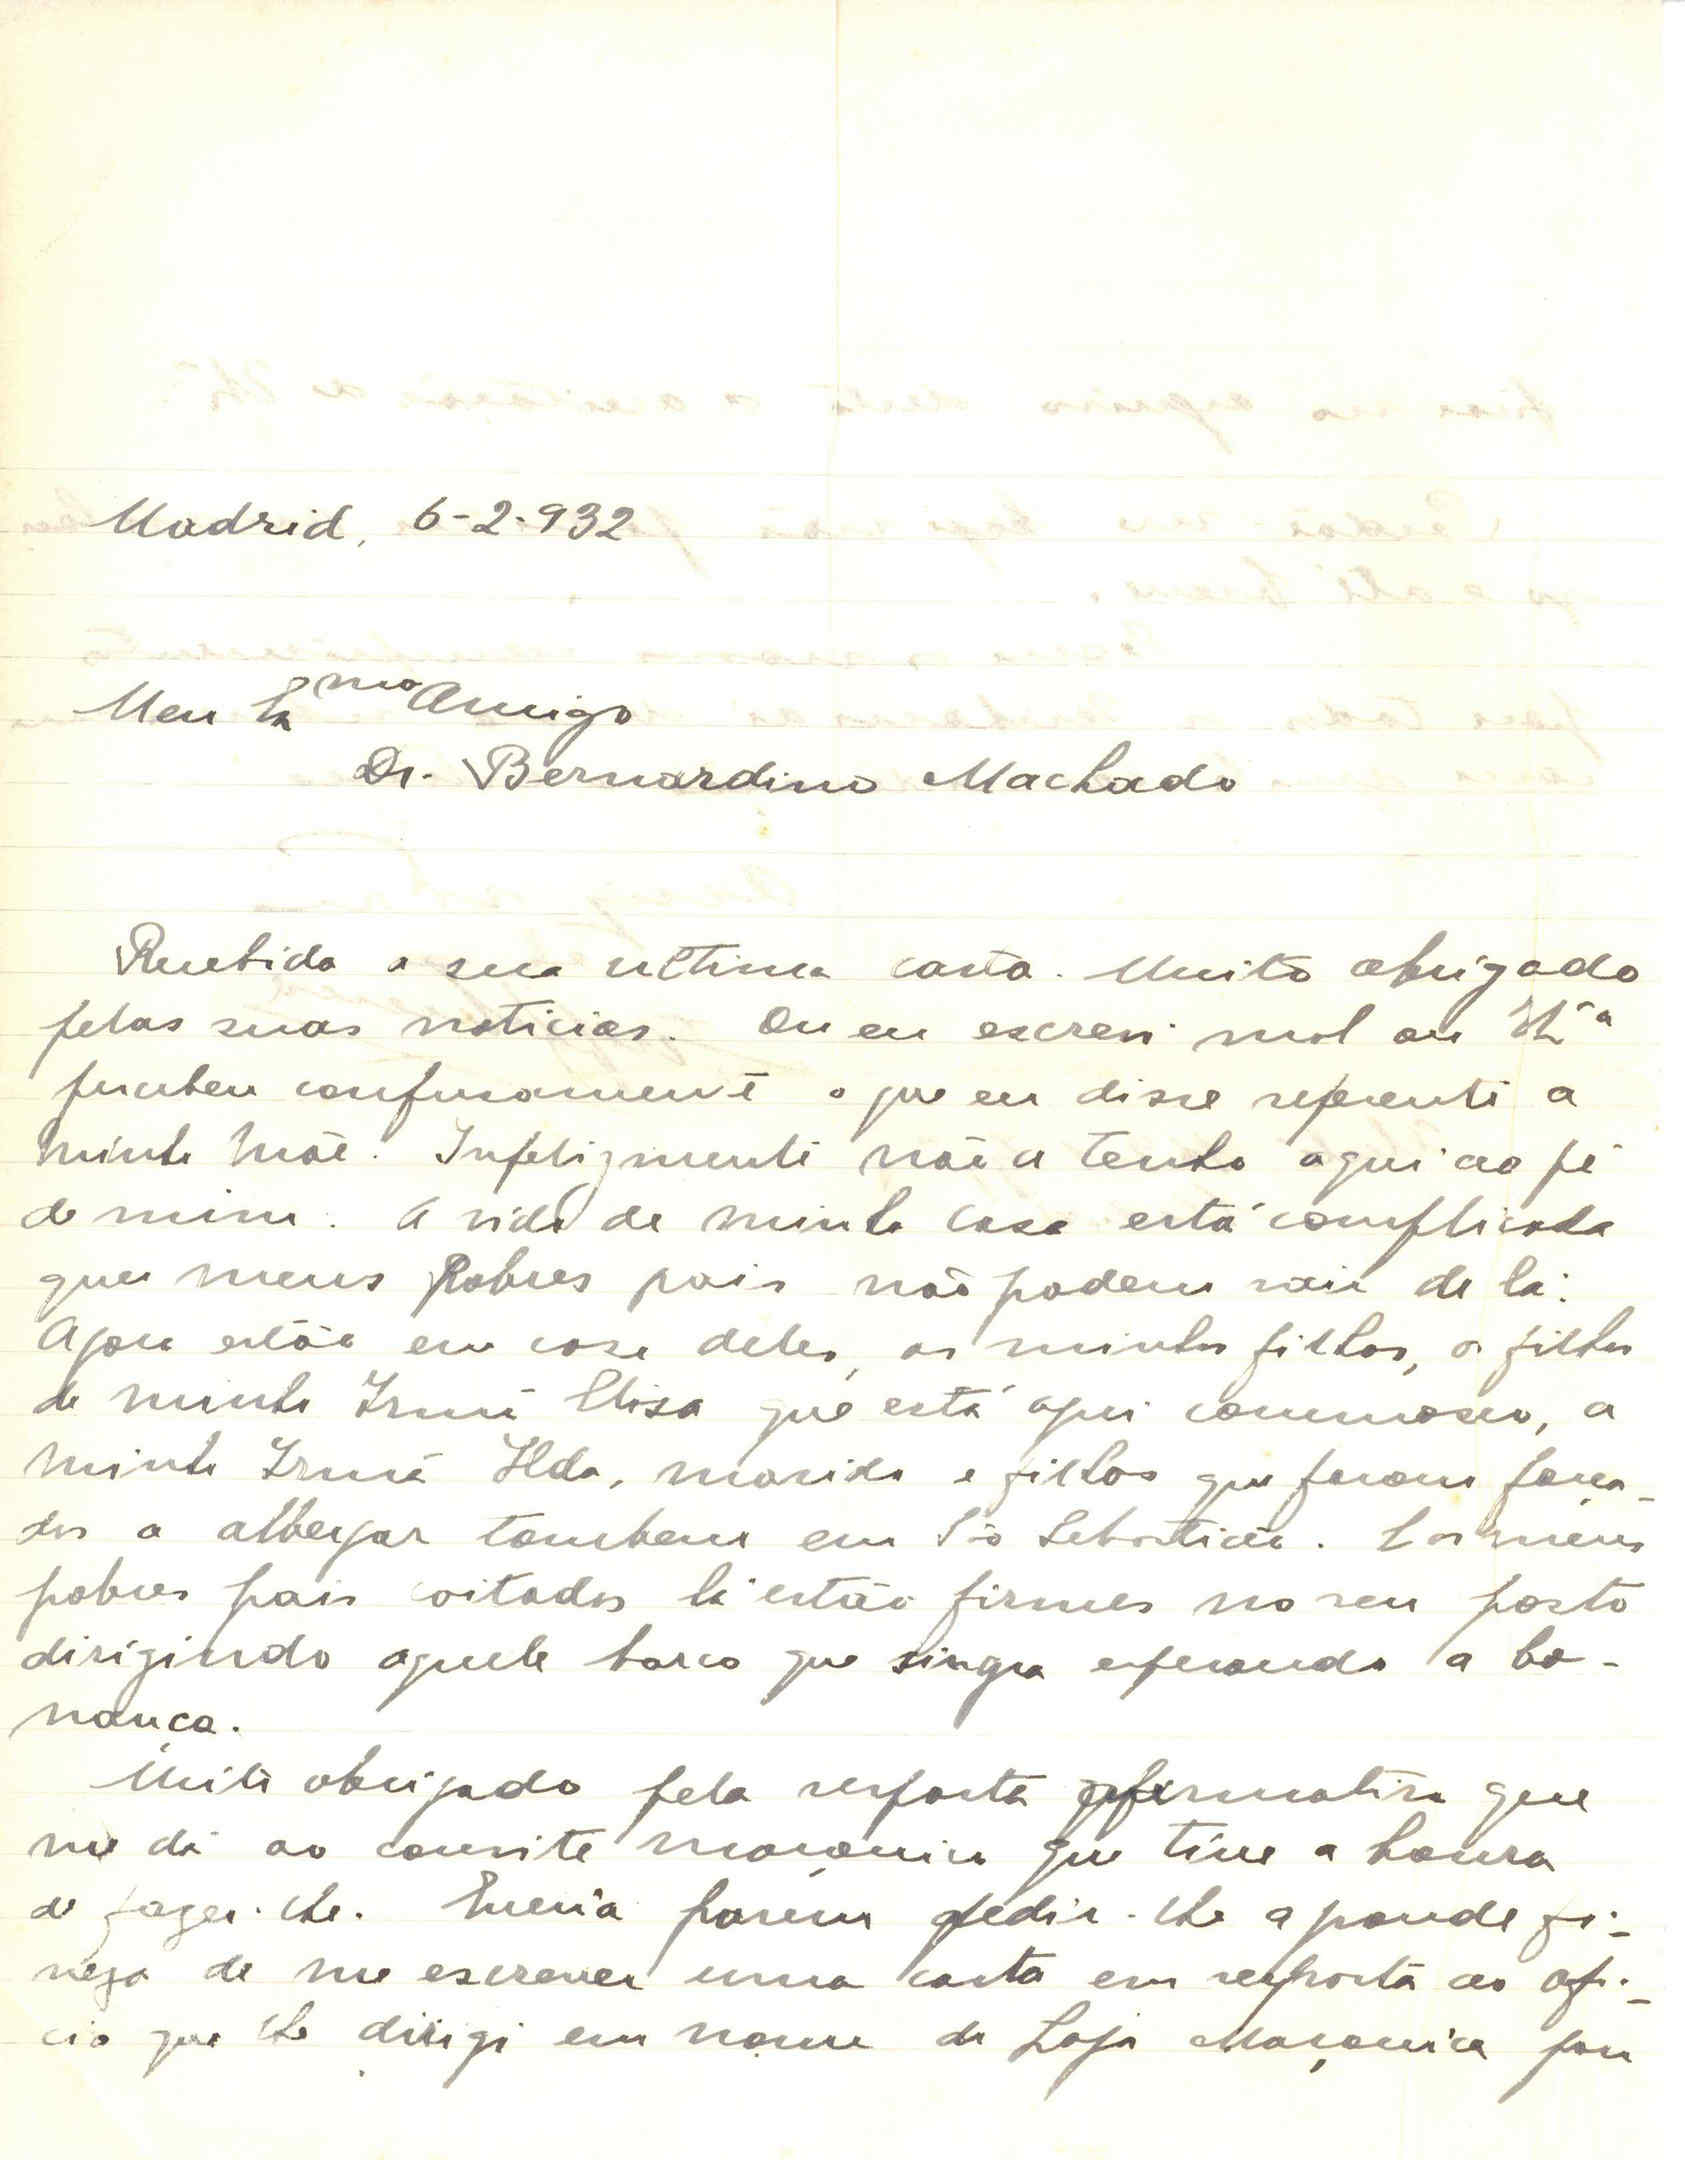 Madrid, 6-2-932
Meu Ex.mo Amigo
Dr. Bernardino Machado
Recebida a sua ultima carta. Muito obrigado
pelas suas noticias. Ou eu escrevi mal ou V. Ex.ª
percebeu confusamente o que eu disse referente a
minha Mãe. Infelizmente não a tenho aqui ao pé
de mim. A vida de minha casa está complicada
que meus Pobres pais não podem sair de lá.
Agora estão em casa deles, os minhos filhos, os filhos
de minha Irmã Elisa que está aqui commosco, a
minha Irmã Ilda, marido e filhos que foram força-
dos a albergar tambem em São Sebastião. E os meus
pobres pais coitados lá estão firmes no seu posto
dirigindo aquele barco que singra esperando a bo-
nança.
Muito obrigado pela resposta afirmativa que
me dá ao convite maçonico que tive a honra
de fazer-lhe. Queria porém pedir-lhe a grande fi-
neza de me escrever uma carta em resposta ao ofi-
cio que lhe dirigi em nome da Loja Maçonica para